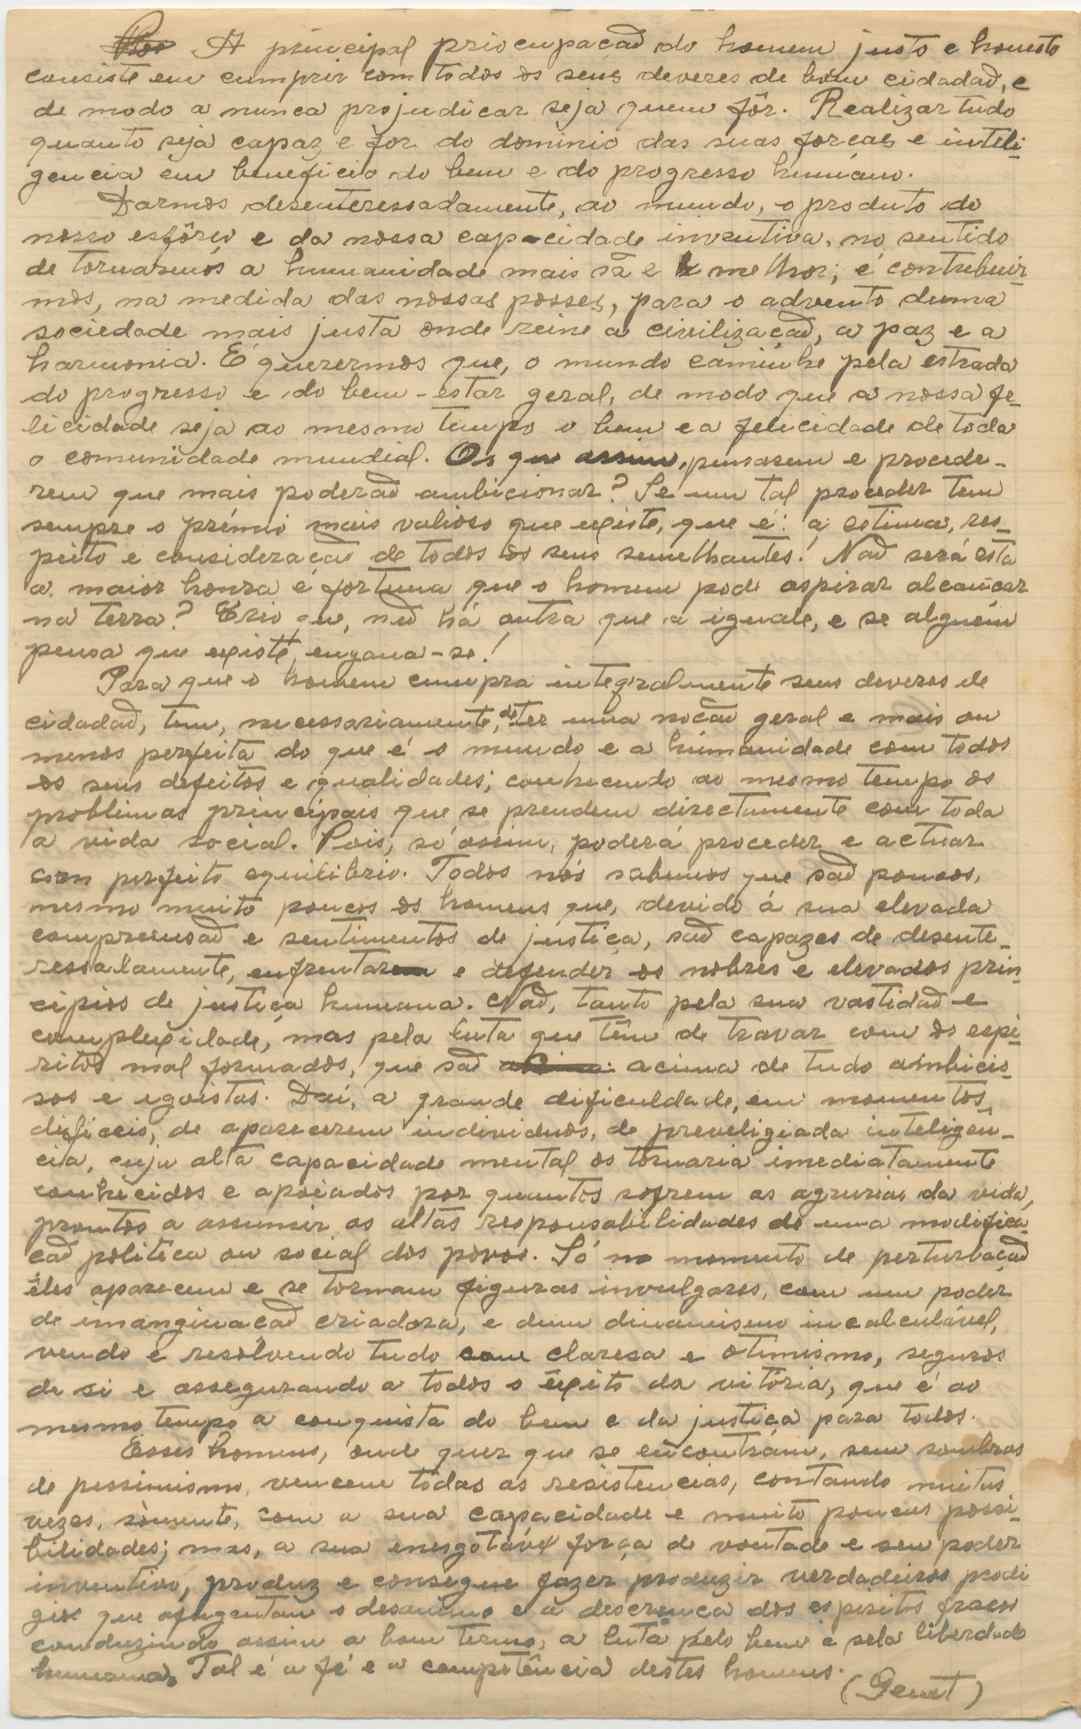 A principal priocupação do homem justo e honesto
consiste em cumprir com todos os seus deveres de bom cidadão, e
de modo a nunca projudicar seja quem fôr. Realizar tudo
quanto seja capaz e for do dominio das suas forcas e inteli-
gencia em beneficio do bem e do progresso humano.
Darmos desenteressadamente, ao mundo, o produto do
nosso esfôrço e da nossa capacidade inventiva, no sentido
de tornarmos a humanidade mais sã e melhor; é contribuir-
mos, na medida das nossas posses, para o advento duma
sociedade mais justa onde reine a civilização, a paz e a
harmonia. É querermos que, o mundo caminhe pela estrada
do progresso e do bem-estar geral, de modo que a nossa fe-
licidade seja ao mesmo tempo o bem e a felicidade de toda
o comunidade mundial. Os que assim, pensarem e procede-
rem que mais poderão ambicionar? Se um tal proceder tem
sempre o prémio mais valioso que existe, que é: a estima, res-
peito e consideração de todos os seus semelhantes! Não será esta
a maior honra e fortuna que o homem pode aspirar alcançar
na terra? Creio que, não há outra que a iguale, e se alguém
pensa que existe, engana-se!
Para que o homem cumpra integralmente seus deveres de
cidadão, tem, necessariamente, de ter uma noção geral e mais ou
menos perfeita do que é o mundo e a humanidade com todos
os seus defeitos e qualidades; conhecendo ao mesmo tempo os
problemas principais que se prendem directamente com toda
a vida social. Pois, só assim, poderá proceder e actuar
com perfeito equilibrio. Todos nós sabemos que são poucos,
mesmo muito poucos os homens que, devido á sua elevada
compreensão e sentimentos de justiça, são capazes de desente-
ressadamente, enfrentar e defender os nobres e elevados prin
cipios de justiça humana. Não, tanto pela sua vastidão e
complexidade, mas pela luta que têm de travar com os espi-
ritos mal formados, que são acima de tudo ambicio-
sos e egoistas. Daí, a grande dificuldade, em momentos
dificeis, de aparecerem individuos, de previligiada inteligen-
cia, cuja alta capacidade mental os tornaria imediatamente
conhecidos e apoiados por quantos sofrem as agruras da vida,
prontos a assumir as altas responsabilidades de uma modifica-
cão politica ou social dos povos. Só no momento de perturbação
êles aparecem e se tornam figuras invulgares, com um poder
de imanginação criadora, e dum dinamismo incalculável,
vendo e resolvendo tudo com claresa e otimismo, seguros
de si e assegurando a todos o êxito da vitória, que é ao
mesmo tempo a conquista do bem e da justiça para todos.
Esses homens, onde quer que se encontram, sem sombras
de pessimismo, vencem todas as resistencias, contando muitas
vezes, sòmente, com a sua capacidade e muito poucas possi-
bilidades; mas, a sua enesgotável força de vontade e seu poder
inventivo, produz e consegue fazer produzir verdadeiros prodi
gios que afugentam o desanimo e a descrença dos espiritos fracos
conduzindo assim a bom termo, a luta pelo bem e pela liberdade
humana. Tal é a fé e a competência destes homens.